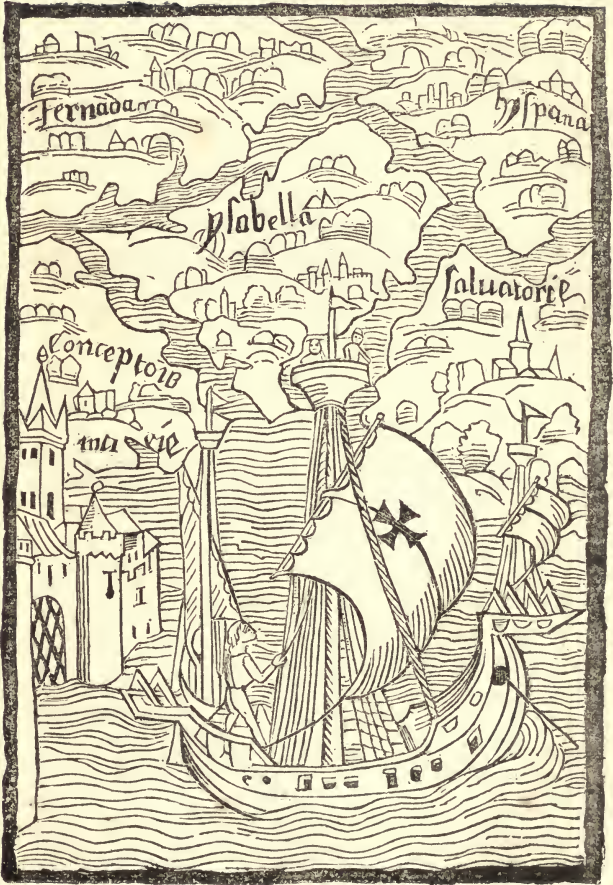 Fernada
hyspana
ysabella
saluatorie
conceptois
marie